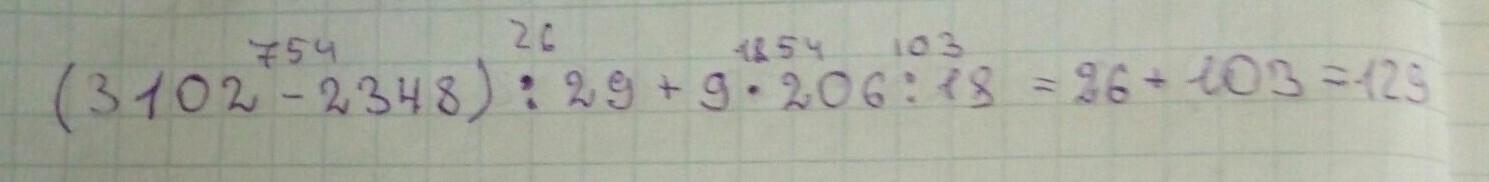 754 26 1854 103
(3102-2348):29+9·206:18=26+103=129